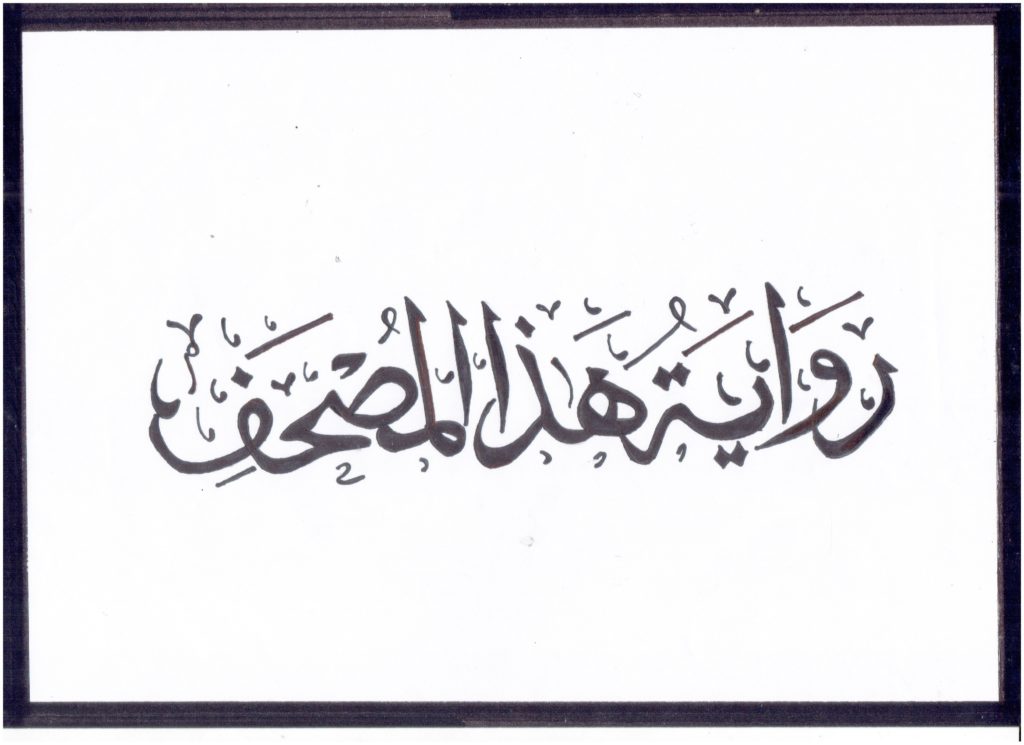 روَايَةُ هَذَا المُصْحَفِ